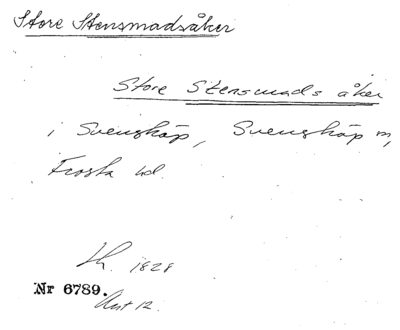 Store Stensmadsåker
Store Stensmads åker
i Svensköp, Svensköp sn,
Frosta hd.
Lh. 1828
Nr 6789.
Akt 12.